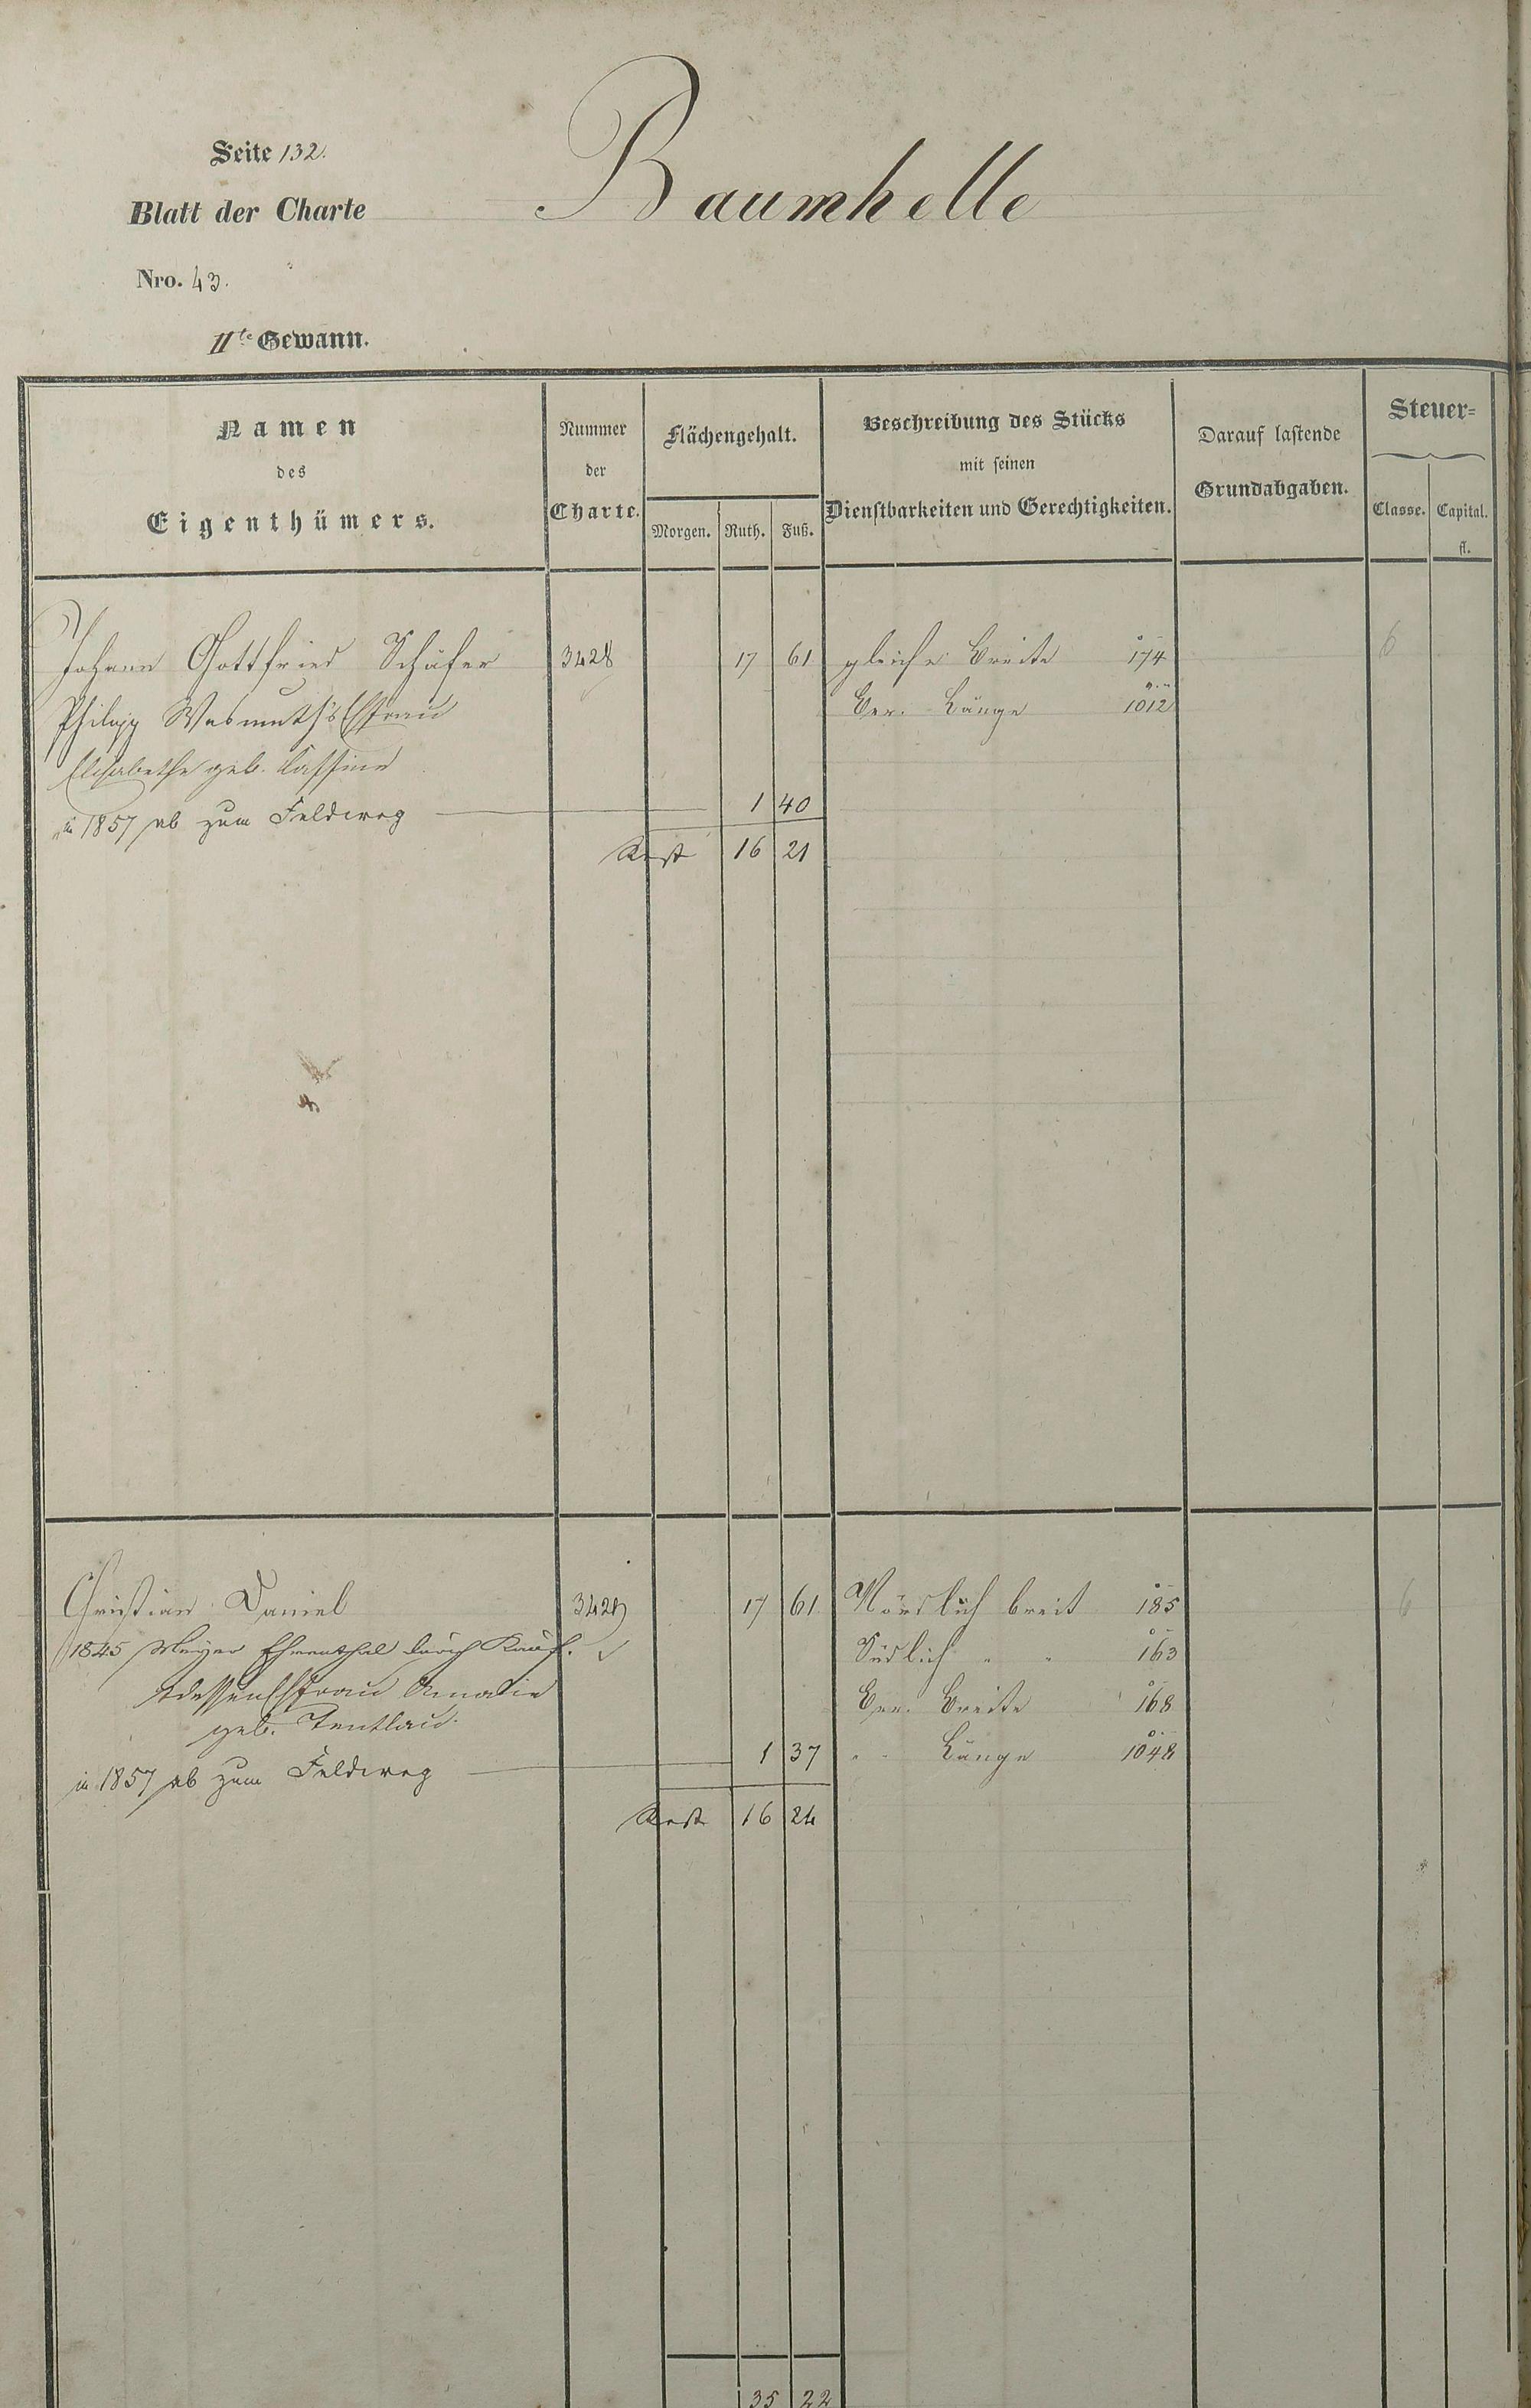 Seite 132.
Blatt der Charte Baumhelle
Nro. 43.
IIte Gewann.
Namen
des
Eigenthümers.
Nummer
der
Charte.
Flächengehalt.
Morgen. Ruth. Fuß.
Beschreibung des Stücks
mit seinen
Dienstbarkeiten und Gerechtigkeiten.
Darauf lastende
Grundabgaben.
Steuer=
Classe. Capital.
fl.
Johann Gottfried Schäfer 3428 17 61 gleiche Breite 174 6
Philipp Wasmuth's Ehfrau Ger. Länge 1012
Elisabethe geb.
in 1857 ab zum Feldweg 1 40
Rest 16 21
Christian Daniel 3429 17 61 Nördlich breit 185 6
1845 Meyer Ehrenthal durch Kauf. Südlich " " 163
dessen Ehfrau Amalie Ger. Breite 168
geb. Tentlau.
in 1857 ab zum Feldweg 1 37 " " Länge 1048
Rest 16 24
35 22